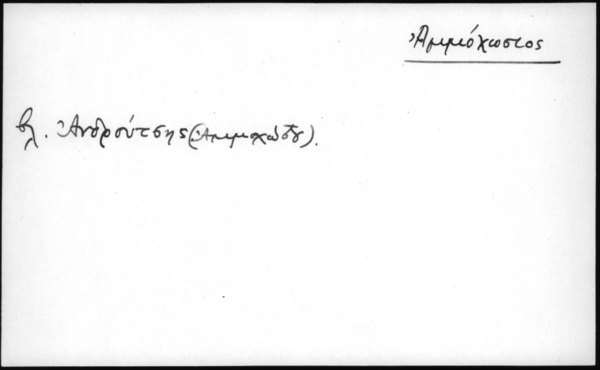 Ἀμμόχωστος
βλ. Ἀνδρούτσης (Ἀμμοχώστου).